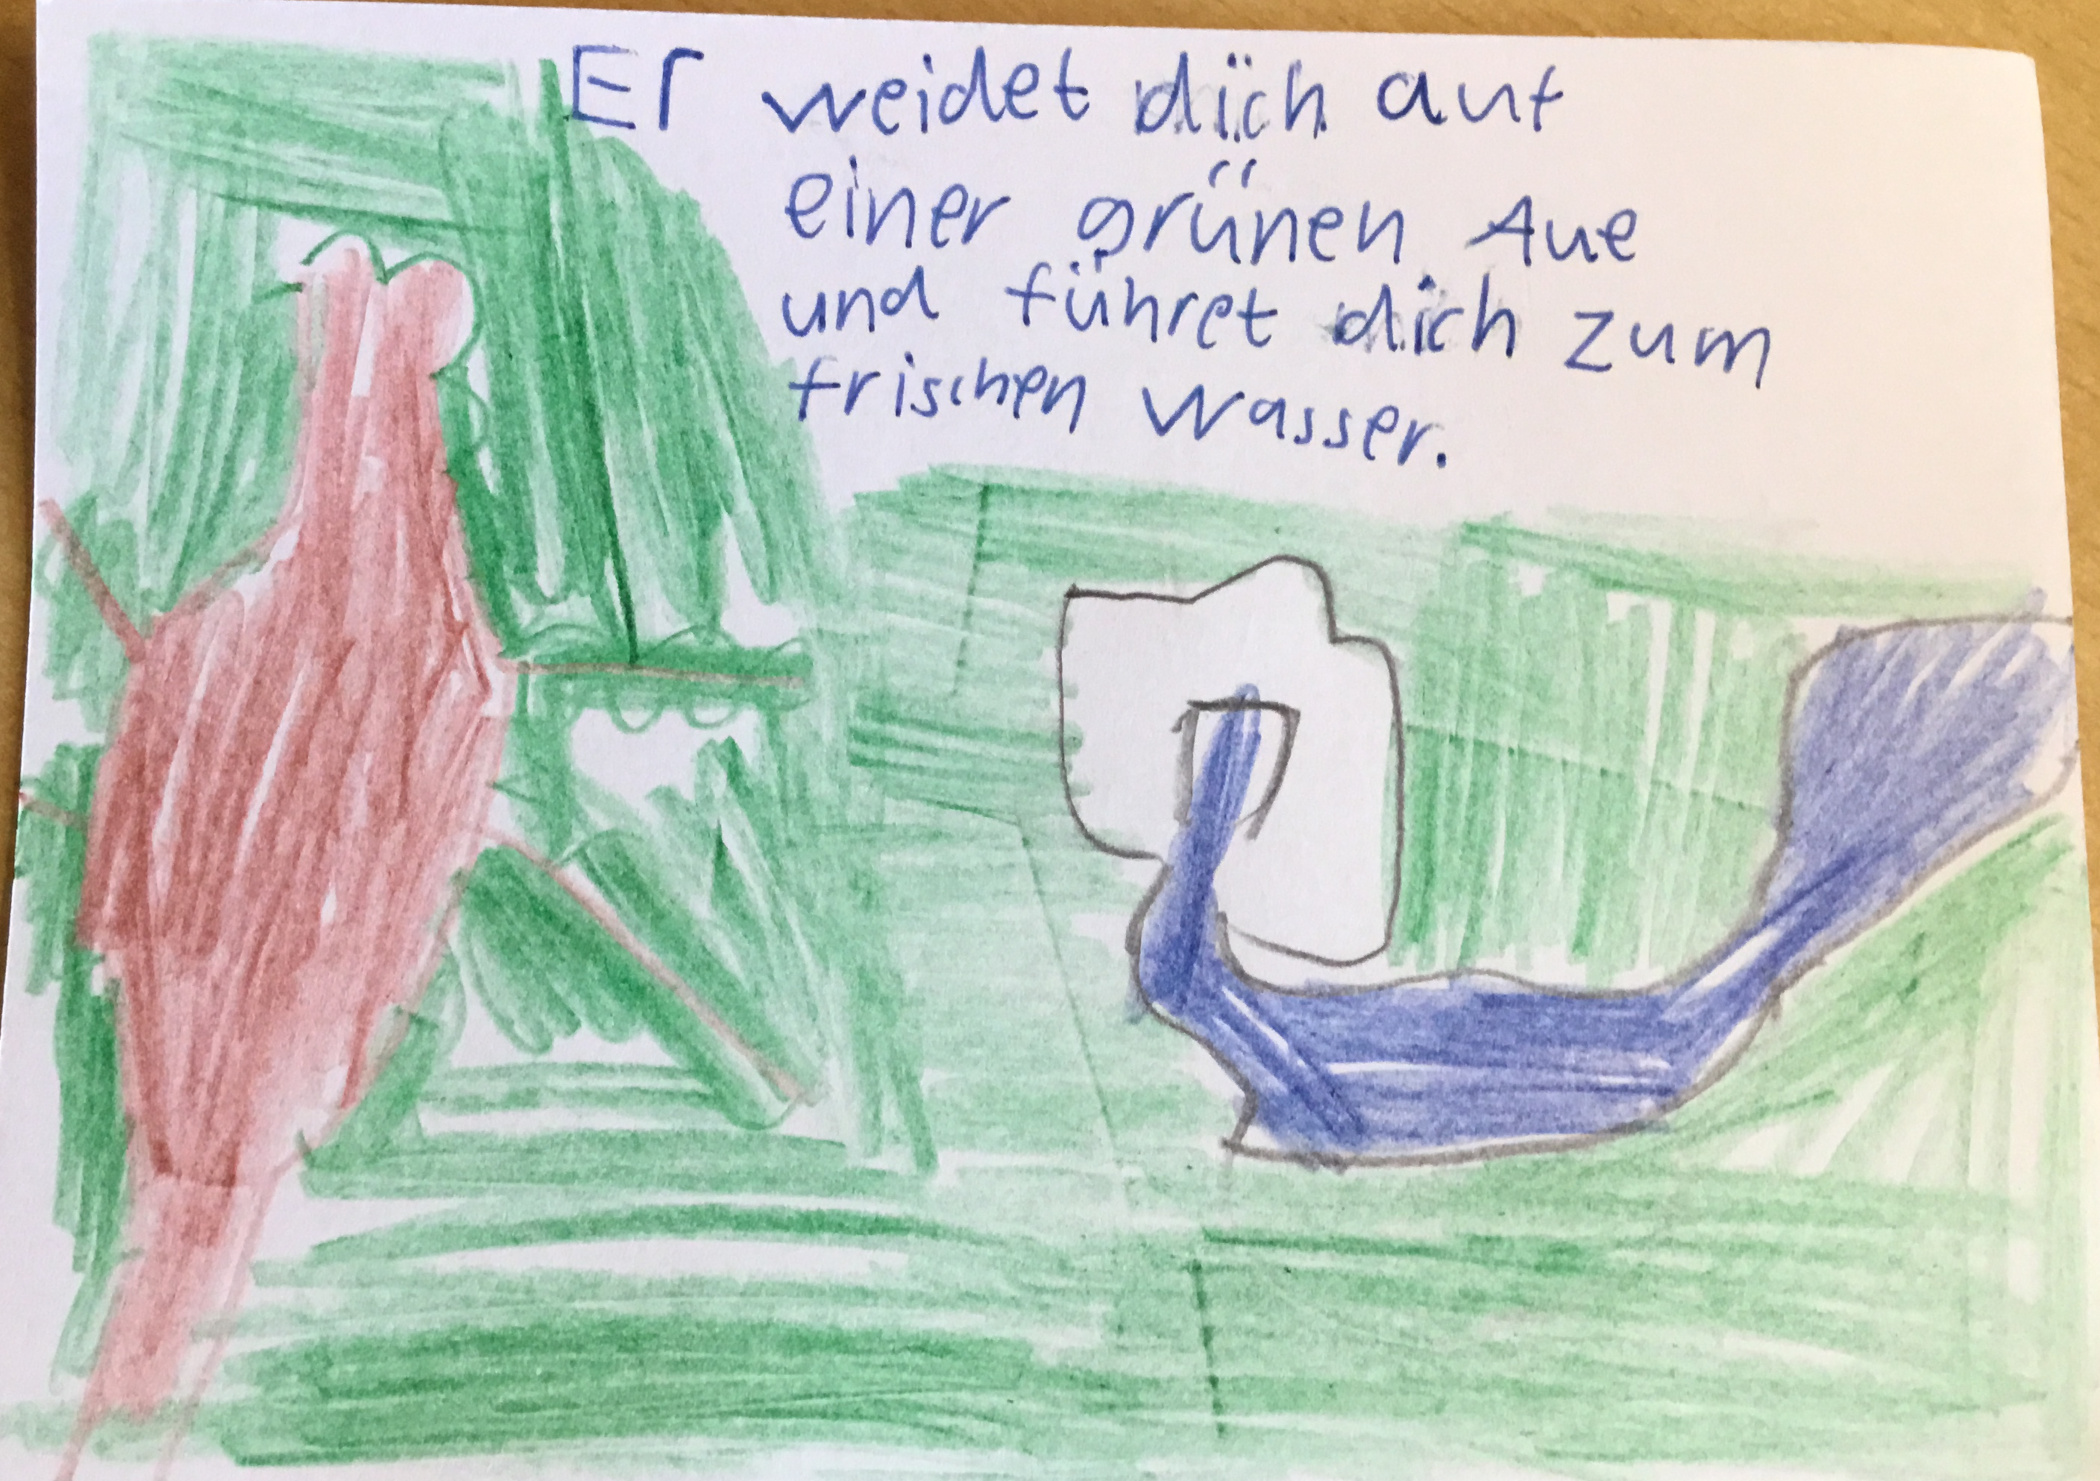 Er weidet dich auf
einer grünen Aue
und führet dich zum
frischen Wasser.